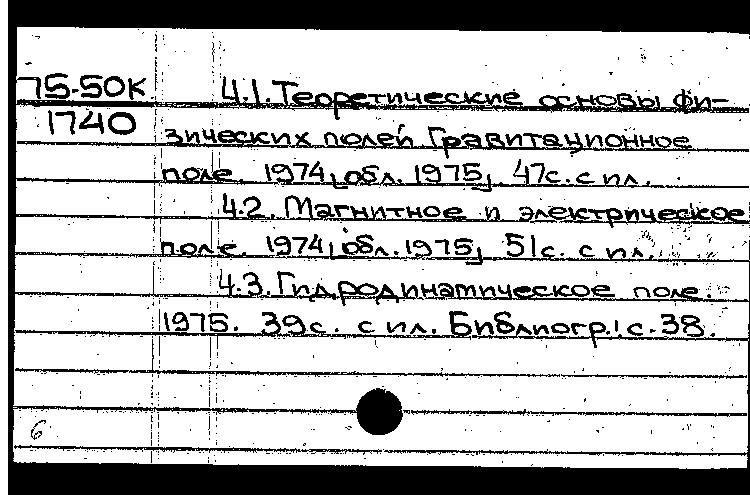 75-50К 4.1. Теоретические основы фи-
1740 зических полей Гравитационное
поле. 1974 [обл. 1975]. 47с. с ил.
4.2. Магнитное и электрическое
поле. 1974 [обл. 1975] 51с. с ил.
4.3. Гидродинамическое поле.
1975. 39с. с ил. Библиогр.: с. 38.
6